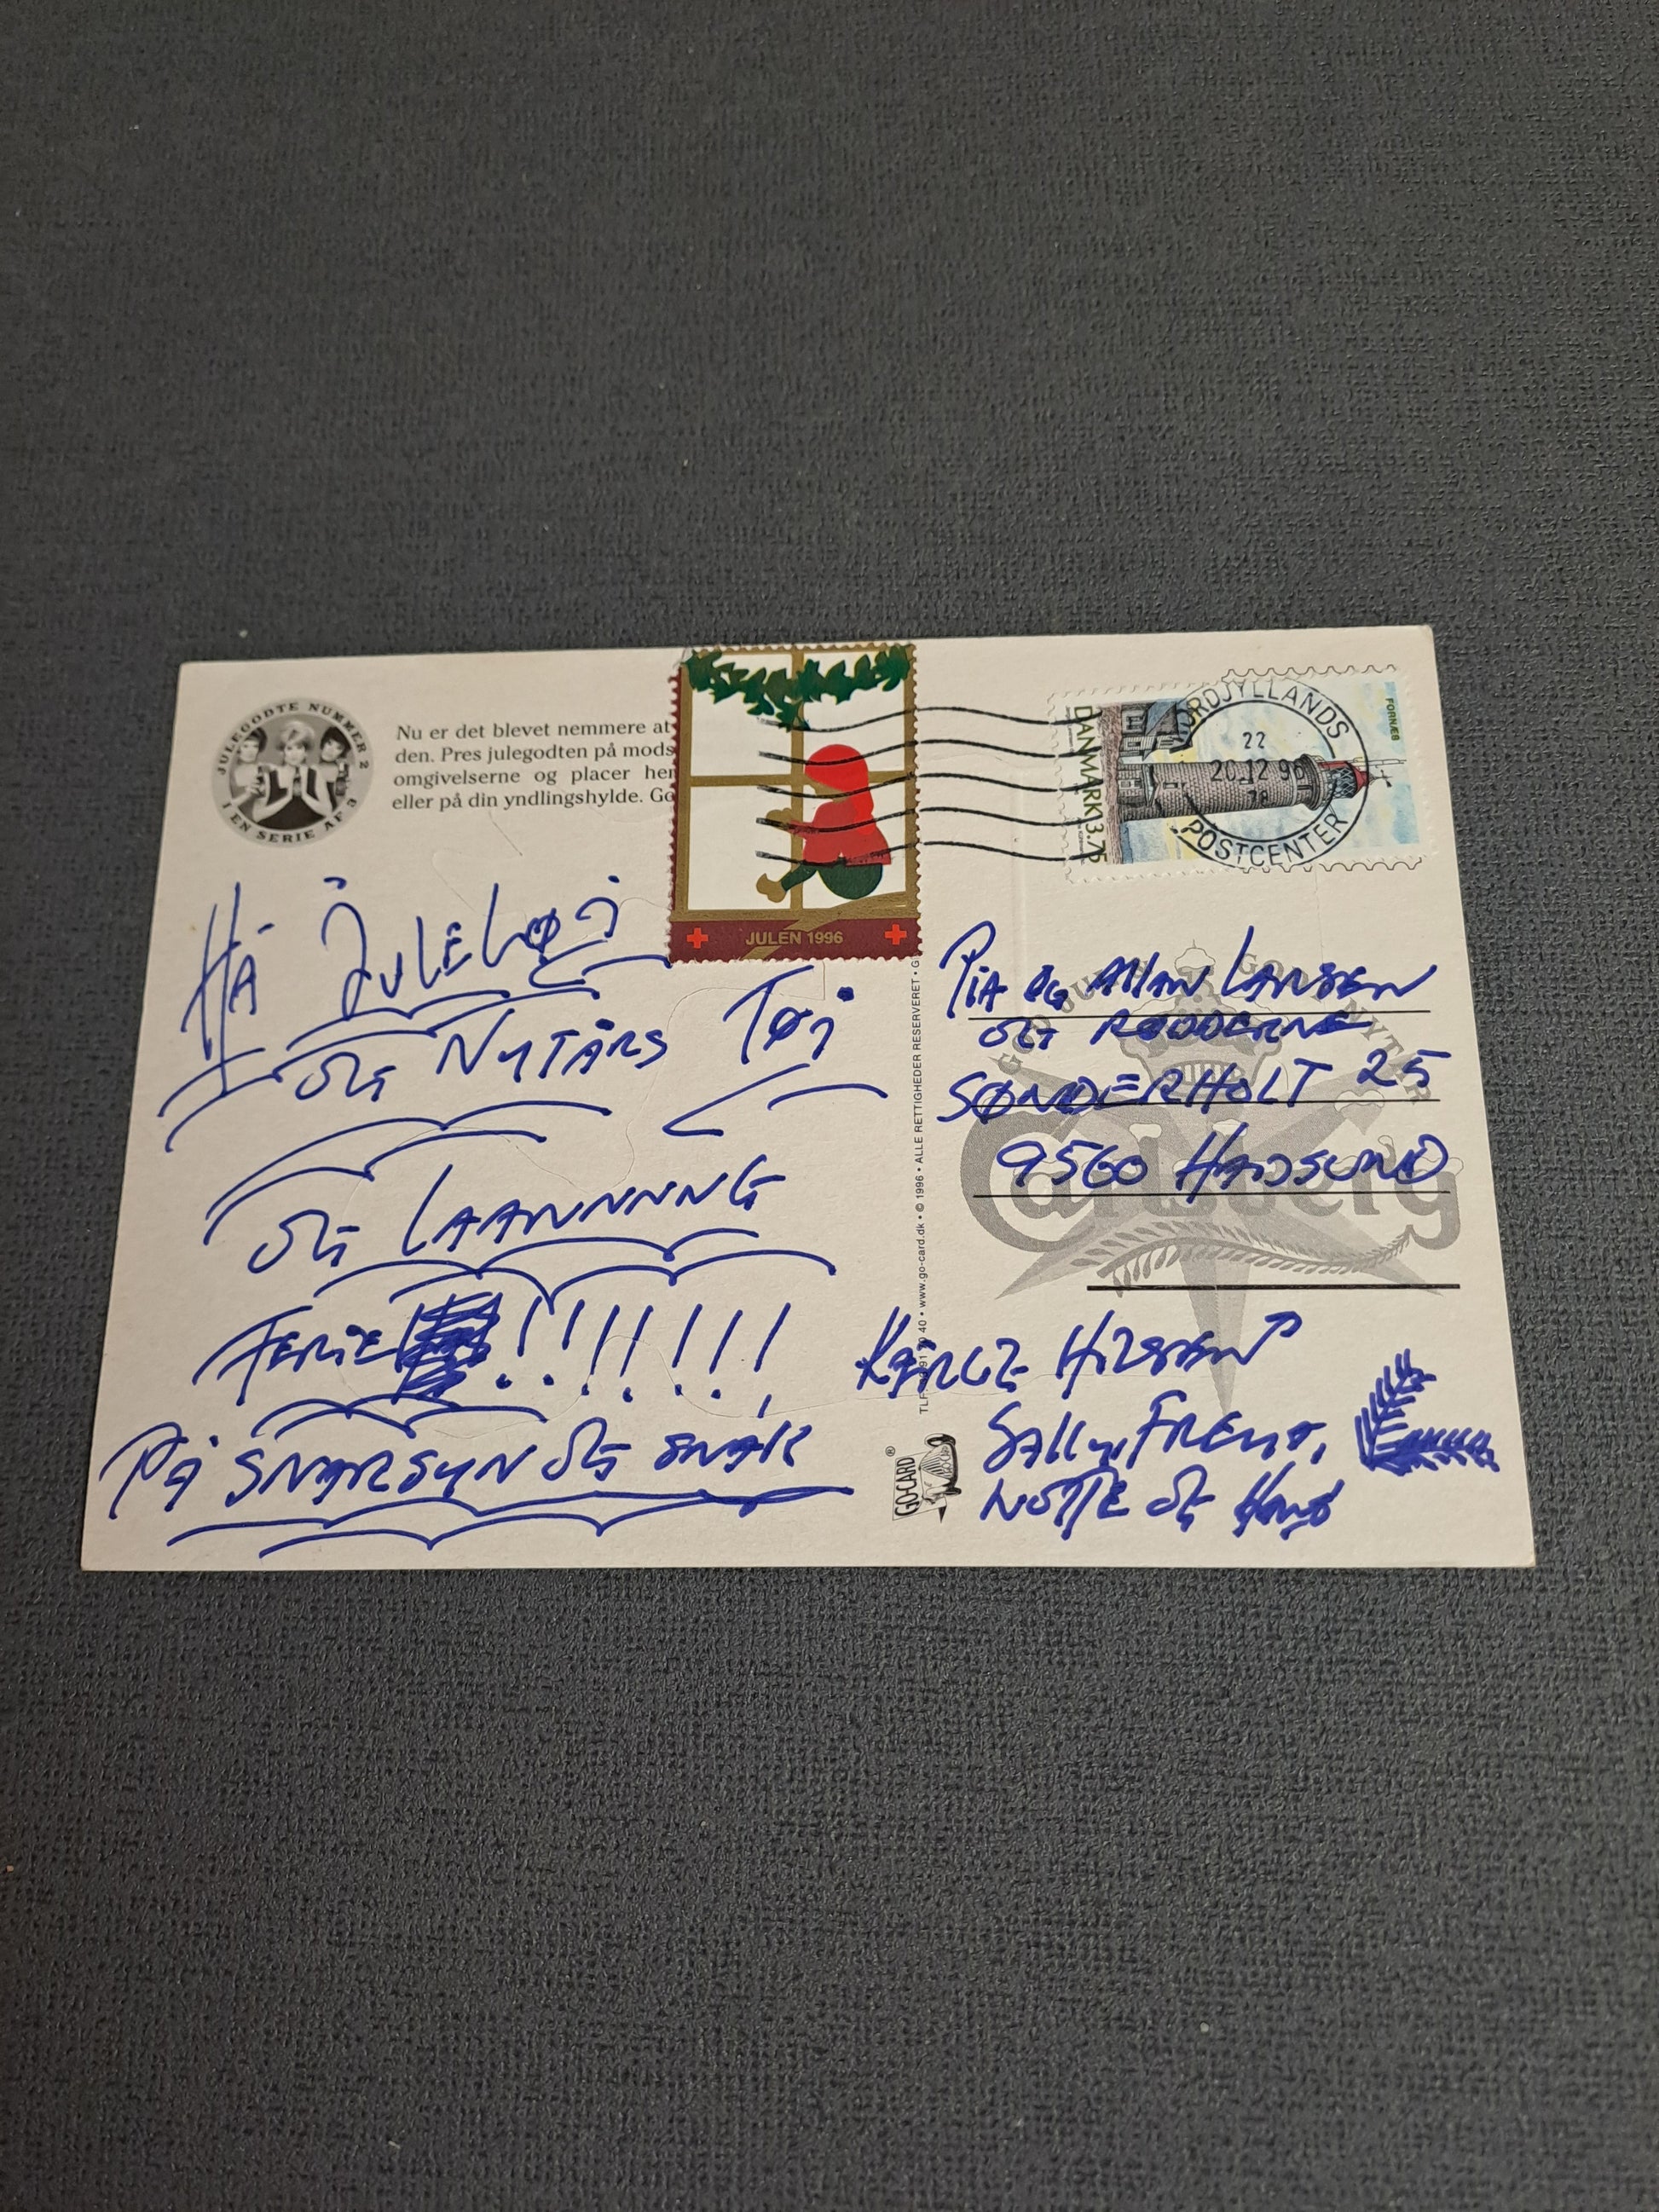 JULEGODTE NUMMER 2
I EN SERIE AF 3
Nu er det blevet nemmere at
den. Pres julegodten på mods
omgivelserne og placer hen
eller på din yndlingshylde. Go
JULEN 1996
DANMARK 3.75
FORNÆS
ORDJYLLANDS
22
20.12 96
78
POSTCENTER
HA JULELØJ
OG NYTÅRS TØJ
OG LAANNNNG
FERIE !!!!!!!!
PÅ SNARSYN OG SNAK
• ALLE RETTIGHEDER RESERVERET •
40 • www.go-card.dk • © 1996
GO-CARD®
GOD JUL & GODT NYTÅR
Carlsberg
PIA OG ALLAN LARSEN
OG RØDDERNE
SØNDERHOLT 25
9560 HADSUND
KÆRLIG HILSEN
SALLY, FREYA,
NOTTE OG